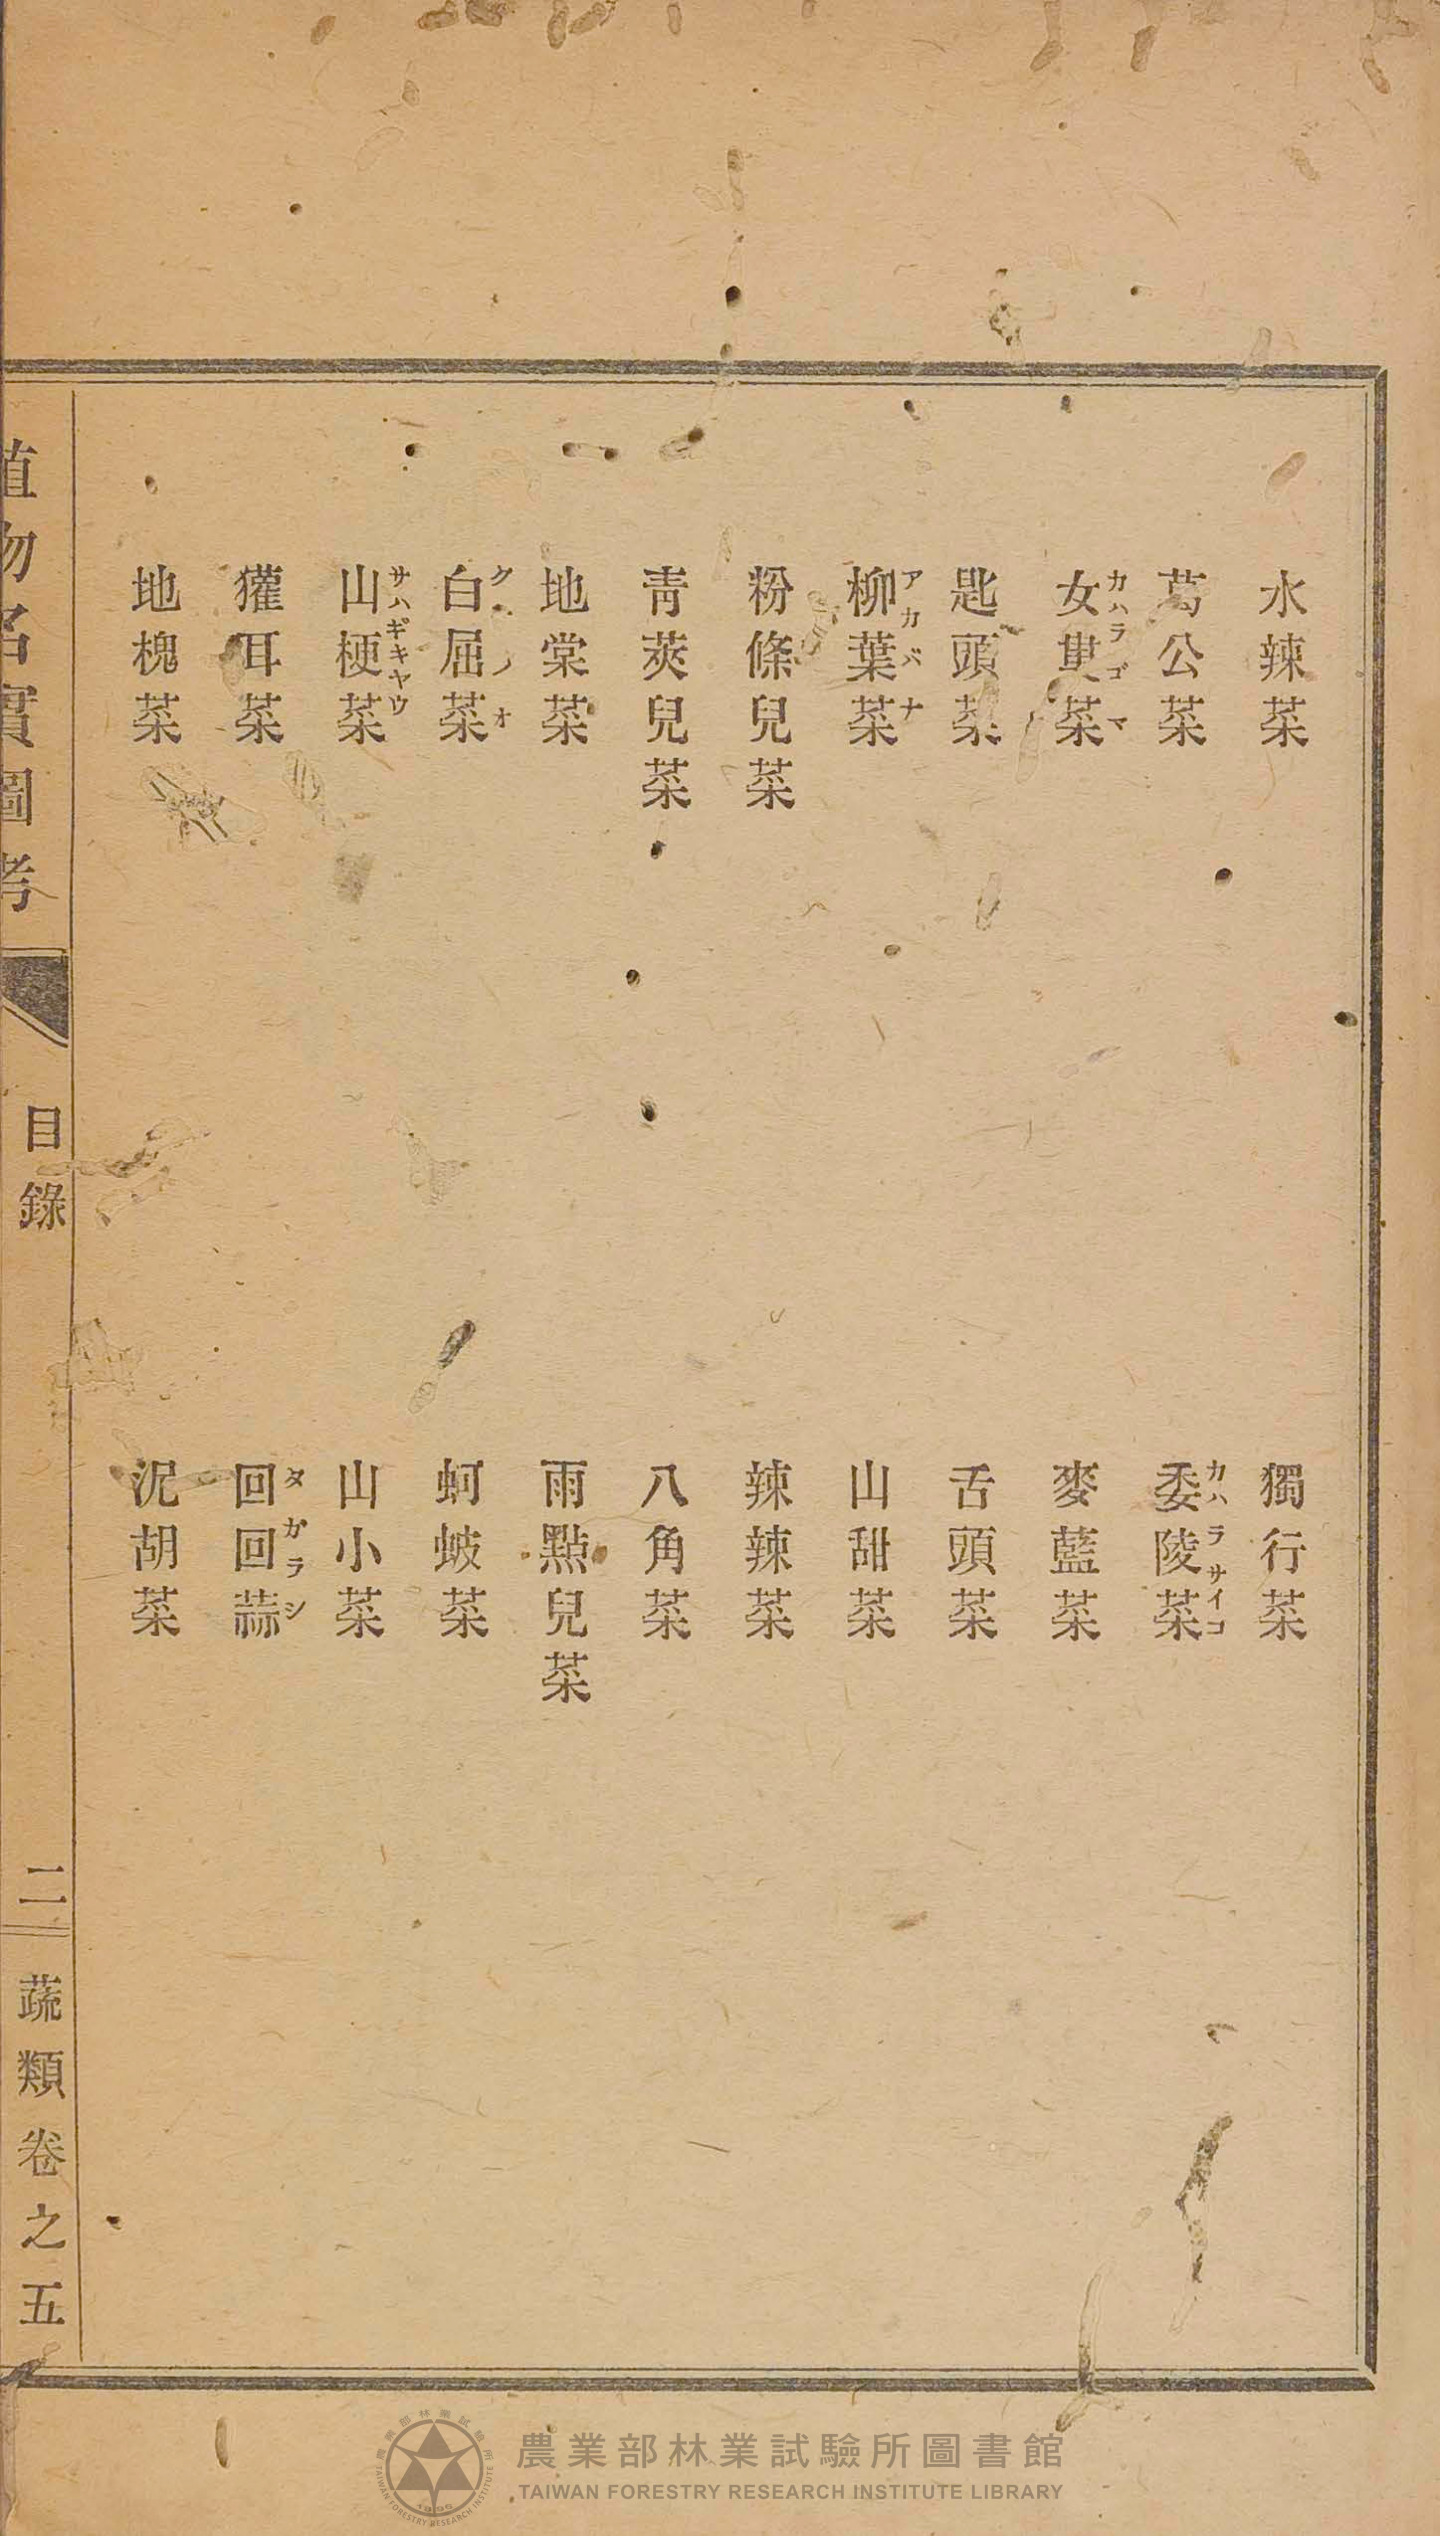 水辣菜
獨行菜
葛公菜
委陵菜
カハラサイコ
女婁菜
カハラゴマ
麥藍菜
匙頭菜
舌頭菜
柳葉菜
アカバナ
山甜菜
粉條兒菜
辣辣菜
青莢兒菜
八角菜
地棠菜
雨點兒菜
白屈菜
クサノオ
蚵蚾菜
山梗菜
サハギキヤウ
山小菜
獾耳菜
回回蒜
タガラシ
地槐菜
泥胡菜
植物名實圖考
目錄
二
蔬類卷之五
農業部林業試驗所圖書館
TAIWAN FORESTRY RESEARCH INSTITUTE LIBRARY
農業部林業試驗所
TAIWAN FORESTRY RESEARCH INSTITUTE
1895